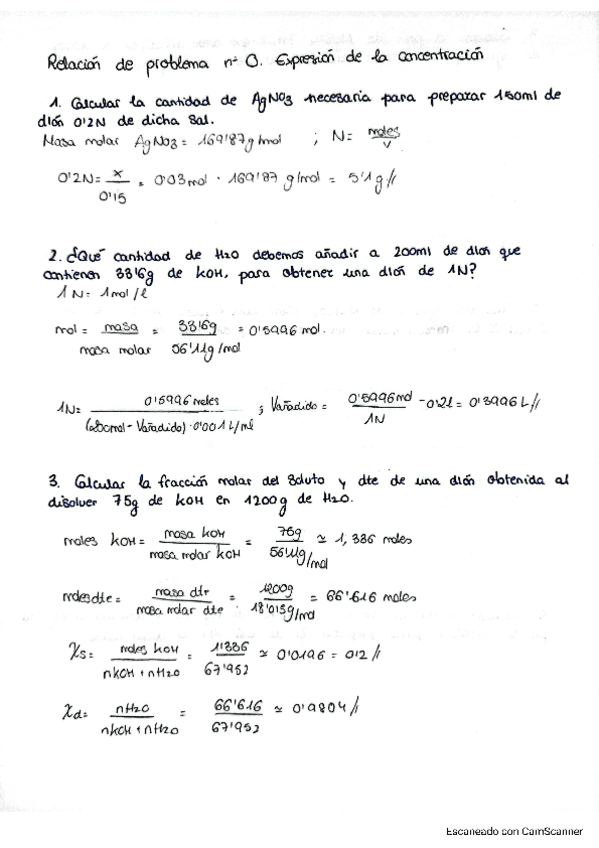 Relación de problema nº 0. Expresión de la concentración
1. Calcular la cantidad de AgNO3 necesaria para preparar 150ml de
dlón 0'2N de dicha sal.
Masa molar AgNO3 = 169'87g/mol ; N = moles / V
0'2N = x / 0'15 = 0'03mol · 169'87 g/mol = 5'1g//
2. ¿Qué cantidad de H2O debemos añadir a 200ml de dlon que
contienen 33'6g de KOH, para obtener una dlón de 1N?
1N = 1mol/l
mol = masa / masa molar = 33'6g / 56'11g/mol = 0'5996 mol.
1N = 0'5996 moles / ( - Vañadido) · 0'001 L/ml ; Vañadido = 0'5996mol / 1N - 0'2l = 0'3996 L//
3. Calcular la fracción molar del soluto y dte de una dlón obtenida al
disolver 75g de KOH en 1200g de H2O.
moles KOH = masa KOH / masa molar KOH = 75g / 56'11g/mol ≃ 1,336 moles
moles dte = masa dte / masa molar dte = 1200g / 18'013g/mol = 66'616 moles
Xs = moles KOH / nKOH + nH2O = 1'336 / 67'952 ≃ 0'0196 = 0'2 //
Xd = nH2O / nKOH + nH2O = 66'616 / 67'952 ≃ 0'9804 //
Escaneado con CamScanner